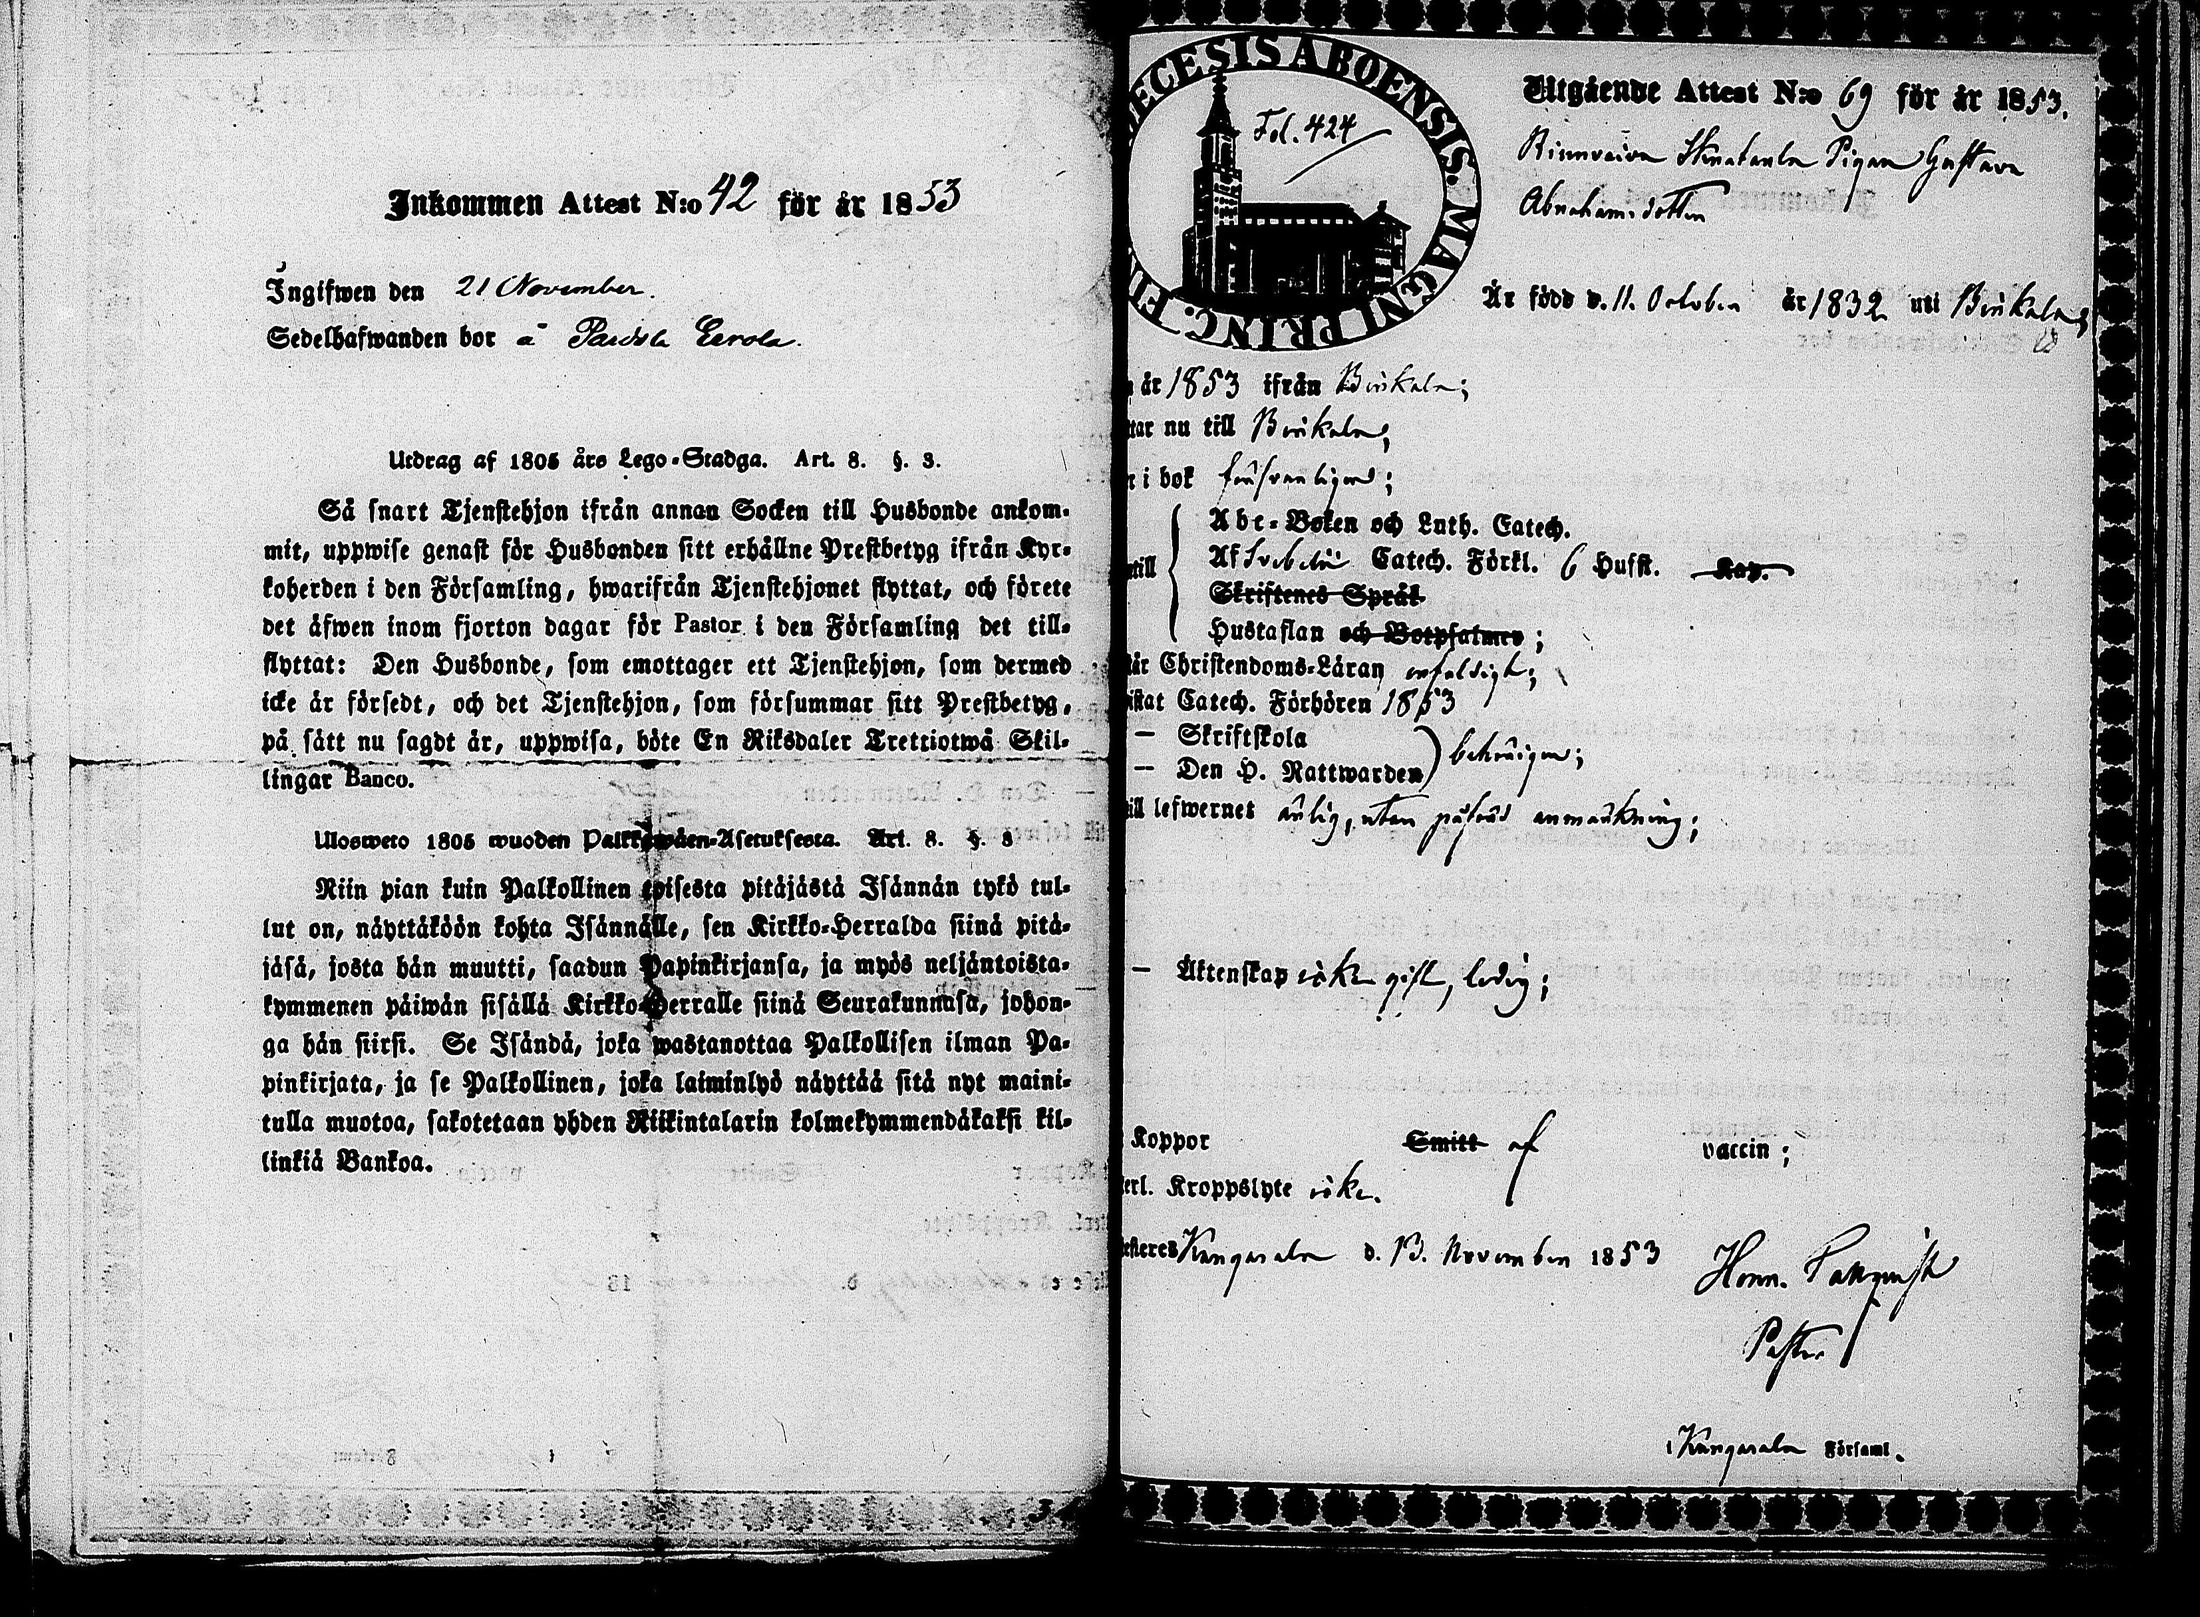 Inkommen Attest N:o 42 för år 1853
Ingifwen den 21 November.
Sedelhafwanden bor å Paidsla Eerola.
Utdrag af 1805 års Lego-Stadga. Art. 8. §. 3.
Så snart Tjenstehjon ifrån annan Socken till Husbonde ankom-
mit, uppwise genast för Husbonden sitt erhållne Prestbetyg ifrån Kyr-
koherden i den Församling, hwarifrån Tjenstehjonet flyttat, och förete
det äfwen inom fjorton dagar för Pastor i den Församling det till-
flyttat: Den Husbonde, som emottager ett Tjenstehjon, som dermed
icke är försedt, och det Tjenstehjon, som försummar sitt Prestbetyg,
på sätt nu sagdt är, uppwisa, böte En Riksdaler Trettiotwå Skil-
lingar Banco.
Ulosweto 1805 wuoden Palkkawäen-Asetuksesta. Art. 8. §. 3
Niin pian kuin Palkollinen toisesta pitäjästä Isännän tykö tul-
lut on, näyttäköön kohta Isännälle, sen Kirkko-Herralda siinä pitä-
jäsä, josta hän muutti, saadun Papinkirjansa, ja myös neljäntoista-
kymmenen päiwän sisällä Kirkko-Herralle siinä Seurakunnasa, johon-
ga hän siirsi. Se Isändä, joka wastanottaa Palkollisen ilman Pa-
pinkirjata, ja se Palkollinen, joka laiminlyö näyttää sitä nyt maini-
tulla muotoa, sakotetaan yhden Riikintalarin kolmekymmendäkaksi kil-
linkiä Bankoa.
ECESIS ABOENSIS. MAGNI PRINC. FIN
Fol. 424
Utgående Attest N:o 69 för år 1853.
Pigan Gustava
Abrahamsdotter
Är född d. 11. October år 1832 uti Birkala;
år 1853 ifrån Birkala;
tar nu till Birkala;
i bok försvarligen;
till
Abc-Boken och Luth. Catech.
Af Svebelii Catech. Förkl. 6 Hufst. Kap.
Skriftenes Språk
Hustaflan och Botpsalmer;
Christendoms-Läran enfaldigt;
istat Catech. Förhören 1853
— Skriftskola
— Den H. Nattwarden behörigen;
ill lefwernet ärlig, utan påförd anmärkning;
— Äktenskap icke gift, ledig;
Koppor Smitt af vaccin;
erl. Kroppslyte icke.
esteres Kangasala d. 13. November 1853
Henr. Pastor
i Kangasala Församl.